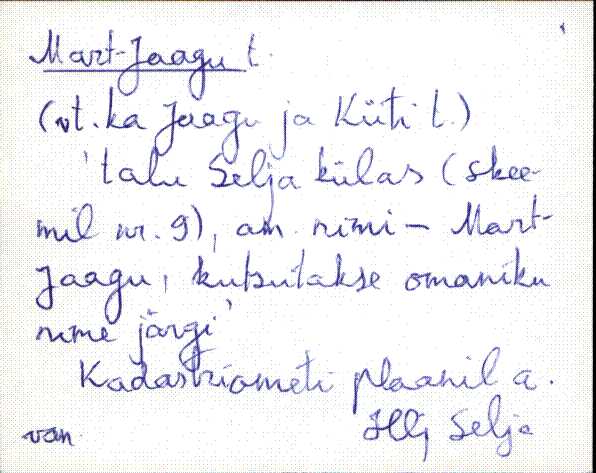 Mart-Jaagu t.
(vt. ka Jaagu ja Küti t.)
'talu Selja külas (skee-
mil nr. 9), am. nimi – Mart-
Jaagu, kutsutakse omaniku
nime järgi'
Kadastriameti plaanil a.
van Selja